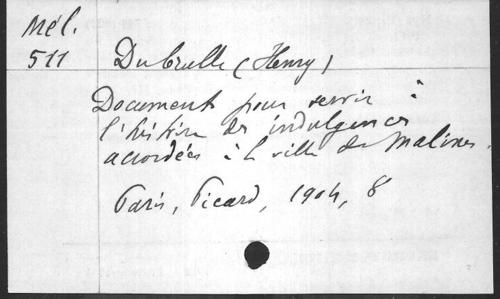 Mél.
511
Dubrulle (Henry)
Document pour servir à
l'histoire des indulgences
accordées à la ville de Malines.
Paris, Picard, 1904, 8